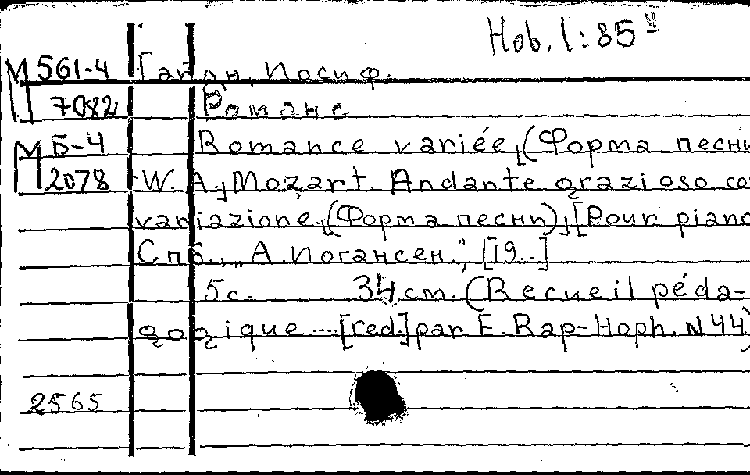 Hob. I:85 II
М 561-4 Гайдн, Иосиф.
П 7082 Романс
М Б-4 Romance variée,[(Форма песни
П 2078 W. A. Mozart. Andante grazioso co
variazione,[(Форма песни),[Pour piano
Спб., „А. Иогансен", [19..]
5с. 34 cm. (Recueil péda-
gogique ... [red.] par E. Rap-Hoph. N 44)
2565